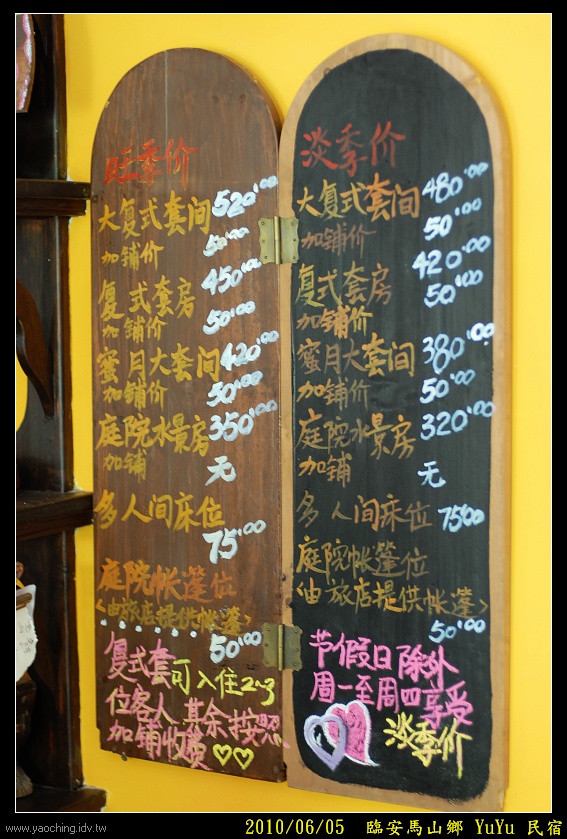 旺季价
大复式套间 520.00
加铺价 50.00
复式套房 450.00
加铺价 50.00
蜜月大套间 420.00
加铺价 50.00
庭院水景房 350.00
加铺 无
多人间床位
75.00
庭院帐篷位
<由旅店提供帐篷>
50.00
复式套可入住2~3
位客人,其余按照
加铺收费
淡季价
大复式套间 480.00
加铺价 50.00
复式套房 420.00
加铺价 50.00
蜜月大套间 380.00
加铺价 50.00
庭院水景房 320.00
加铺 无
多人间床位 75.00
庭院帐篷位
<由旅店提供帐篷>
50.00
节假日除外
周一至周四享受
淡季价
www.yaoching.idv.tw
2010/06/05 臨安馬山鄉 YuYu 民宿